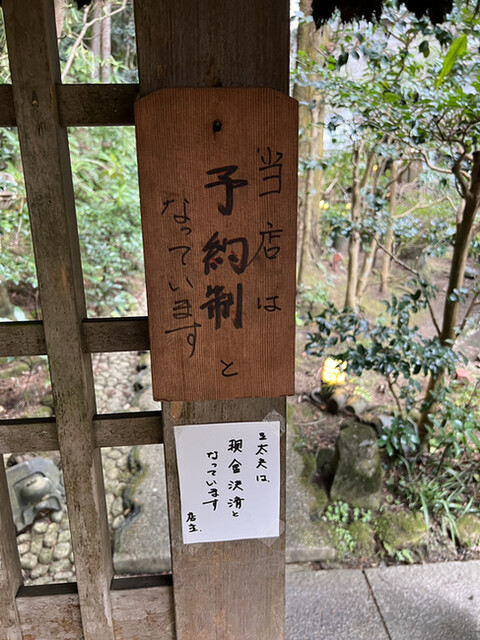 当店は
予約制と
なっています
又、太夫は、
現金決済と
なっています
店主.